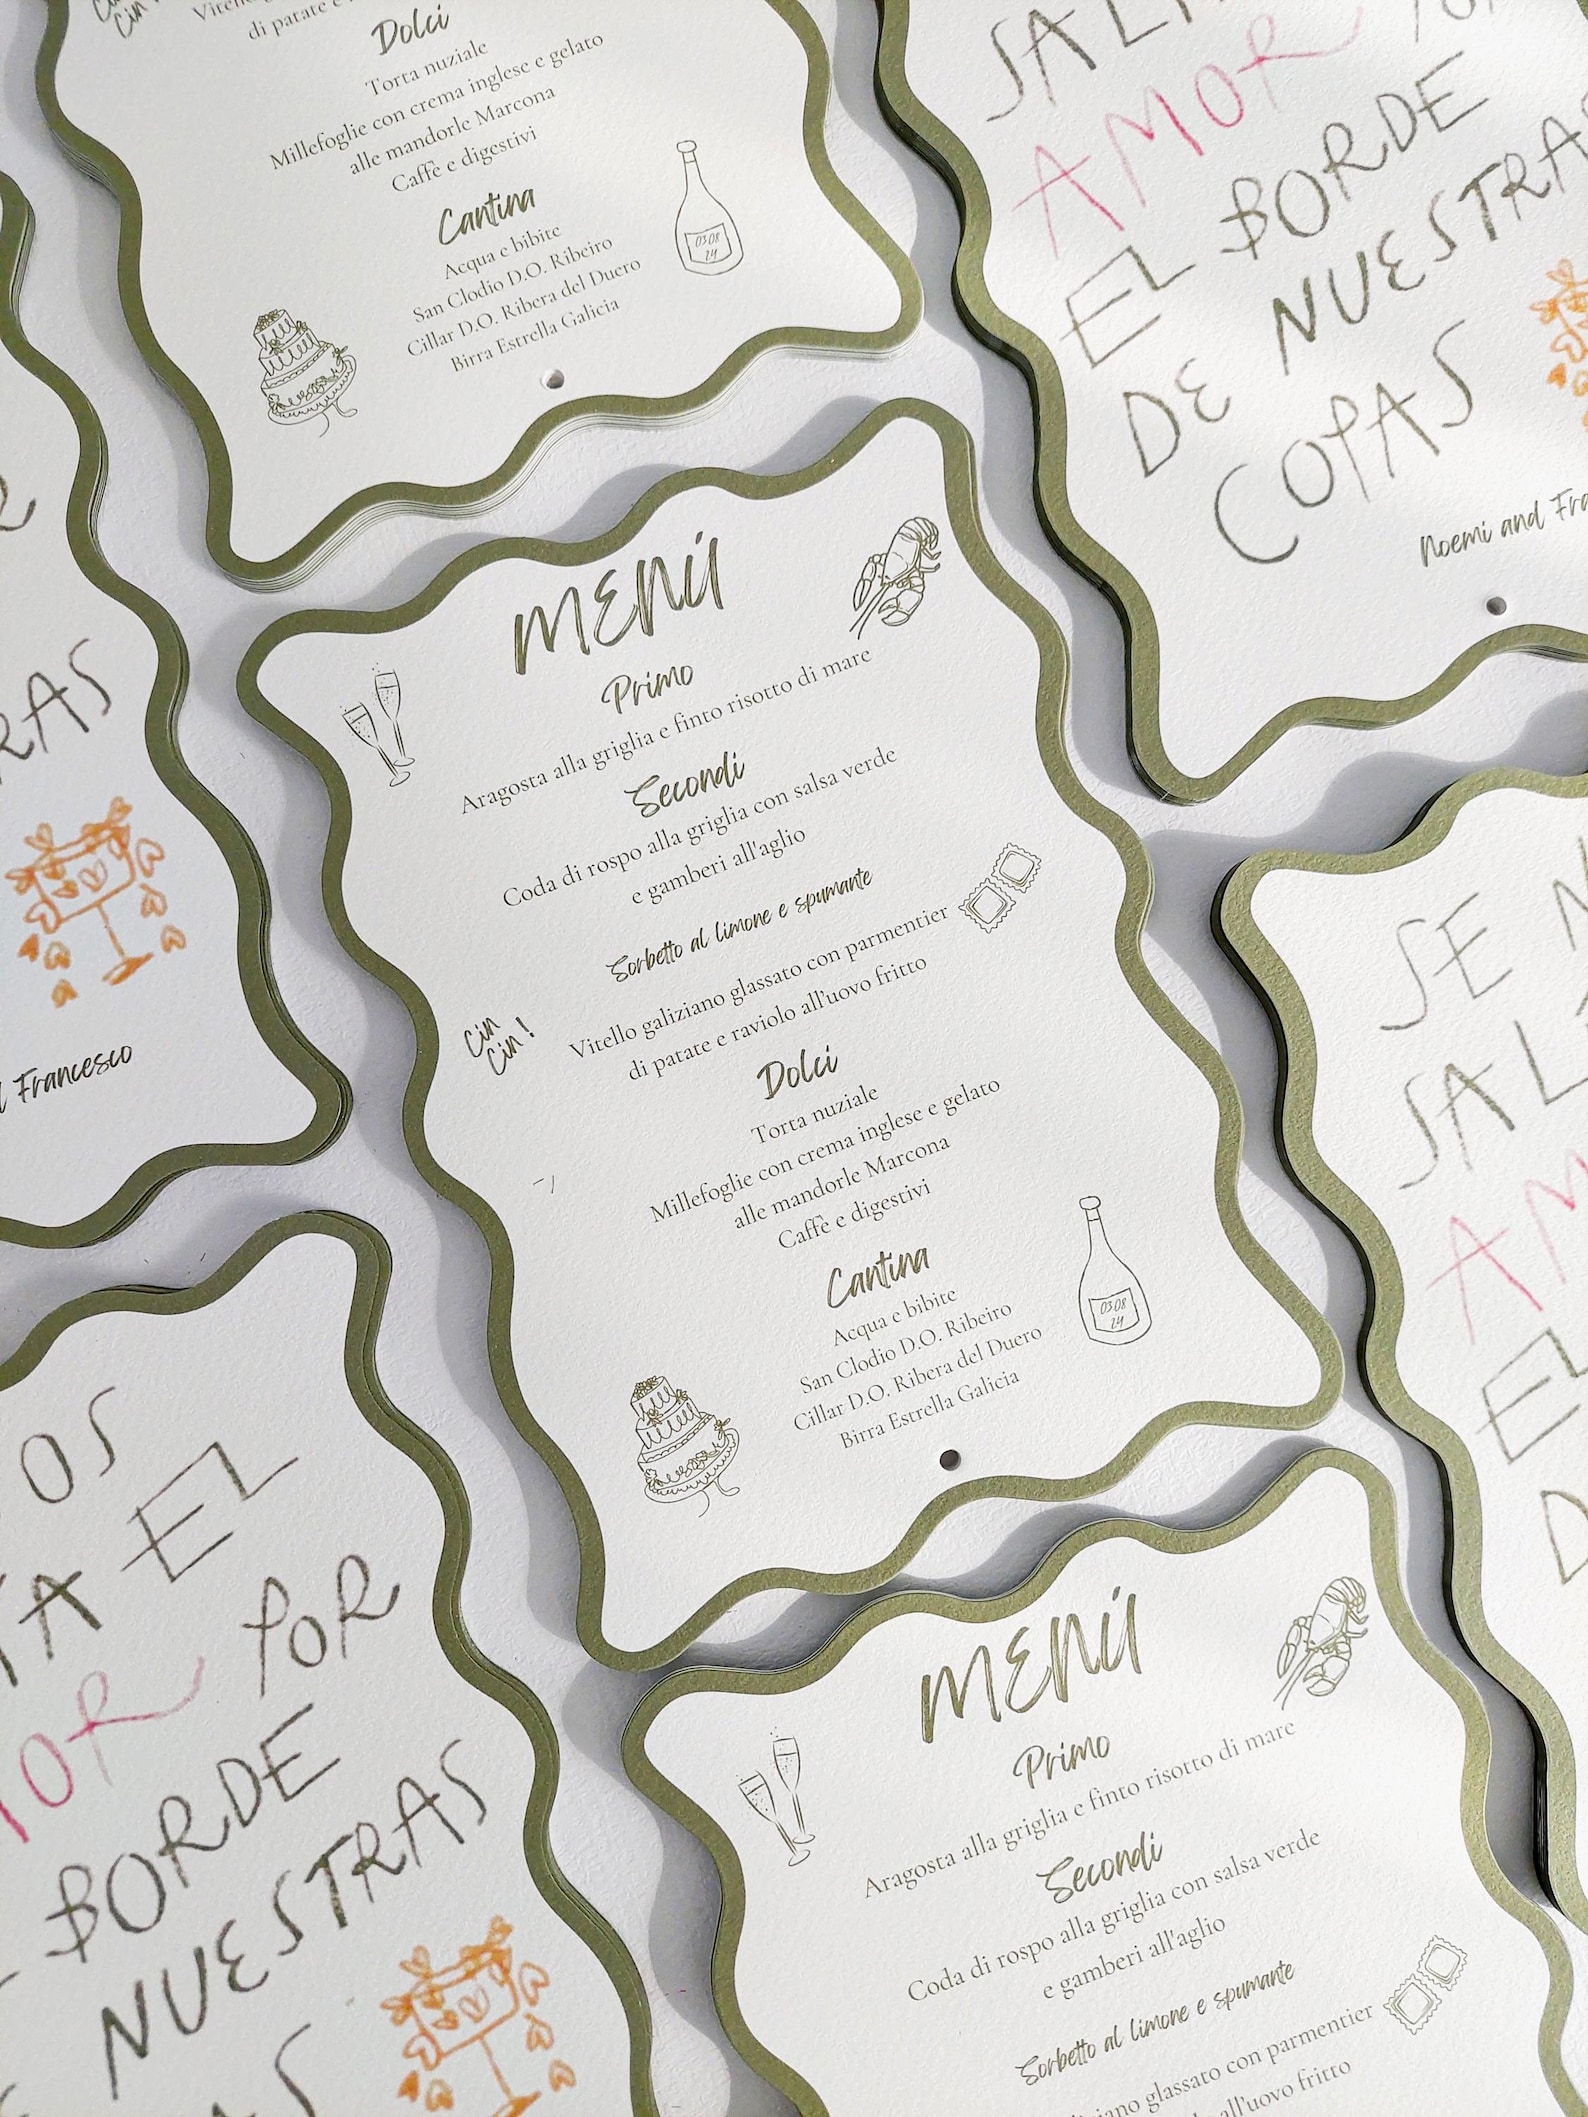 Cin
Vitello
di patate e
Dolci
Torta nuziale
Millefoglie con crema inglese e gelato
alle mandorle Marcona
Caffè e digestivi
Cantina
Acqua e bibite
San Clodio D.O. Ribeiro
Cillar D.O. Ribera del Duero
Birra Estrella Galicia
03.08
24
AMOR
EL BORDE
DE NUESTRAS
COPAS
Noemi and Fra
MENÚ
Primo
Aragosta alla griglia e finto risotto di mare
Secondi
Coda di rospo alla griglia con salsa verde
e gamberi all'aglio
Sorbetto al limone e spumante
Vitello galiziano glassato con parmentier
di patate e raviolo all'uovo fritto
Cin
Cin!
Dolci
Torta nuziale
Millefoglie con crema inglese e gelato
alle mandorle Marcona
Caffè e digestivi
Cantina
Acqua e bibite
San Clodio D.O. Ribeiro
Cillar D.O. Ribera del Duero
Birra Estrella Galicia
03.08
24
RAS
Francesco
SE N
SAL
AM
EL
D
OS
TA EL
MOR POR
BORDE
NUESTRAS
MENÚ
Primo
Aragosta alla griglia e finto risotto di mare
Secondi
Coda di rospo alla griglia con salsa verde
e gamberi all'aglio
Sorbetto al limone e spumante
ziano glassato con parmentier
all'uovo fritto